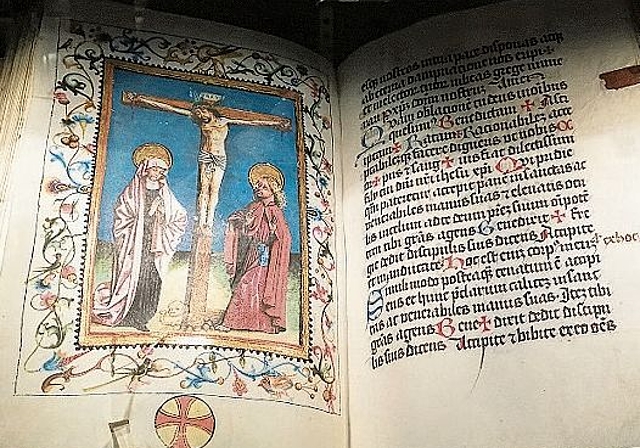 nostros intua pace disponas atq3
abeterna damnatione nos eripi
electorum tuorum iubeas grege nume
nostrum Amen
oblatione tu deus inoibus
quesumus Benedictam ✠ Asci
iptam ✠ Ratam Racionabilez acce
ptabileq3 facere digneris ut nobis Co
pus ✠ et san ✠ fiat dilectissimi
filij tui dni nri ihesu xpi Qui pridie
qm pateretur accepit pane in sanctas ac
venerabiles manus suas z eleuatis ocu
lis incelum adte deum suum oipote
tem tibi gras agens Benedixit ✠ Fre
git dedit discipulis suis dicens Accipite
et manducate Hoc est eni corp9 meu
Simili modo posteaq3 cenatum e accipi
ens et hunc pclarum calicez insanc
tas ac venerabiles manus suas Itez tibi
gras agens Bene ✠ dixit dedit discipu
lis suis dicens Accipite z bibite exeo oes